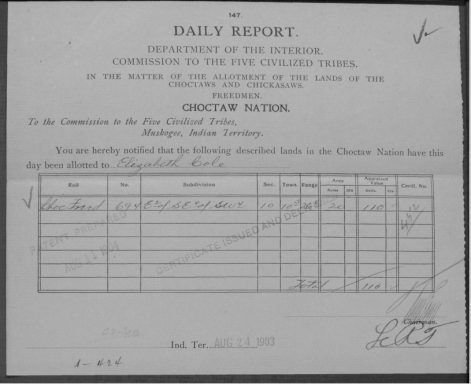 147.
DAILY REPORT.
DEPARTMENT OF THE INTERIOR,
COMMISSION TO THE FIVE CIVILIZED TRIBES.
IN THE MATTER OF THE ALLOTMENT OF THE LANDS OF THE
CHOCTAWS AND CHICKASAWS.
FREEDMEN.
CHOCTAW NATION.
To the Commission to the Five Civilized Tribes,
Muskogee, Indian Territory.
You are hereby notified that the following described lands in the Choctaw Nation have this
day been allotted to Elizabeth Cole
Roll No. Subdivision Sec. Town. Range Area Appraised Value Certif. No.
Choc Freed 694 E2 of SE4 of SW4 10 20 110
PATENT PREPARED
CERTIFICATE ISSUED AND
Total 110
Chairman.
Ind. Ter. AUG 24 1903